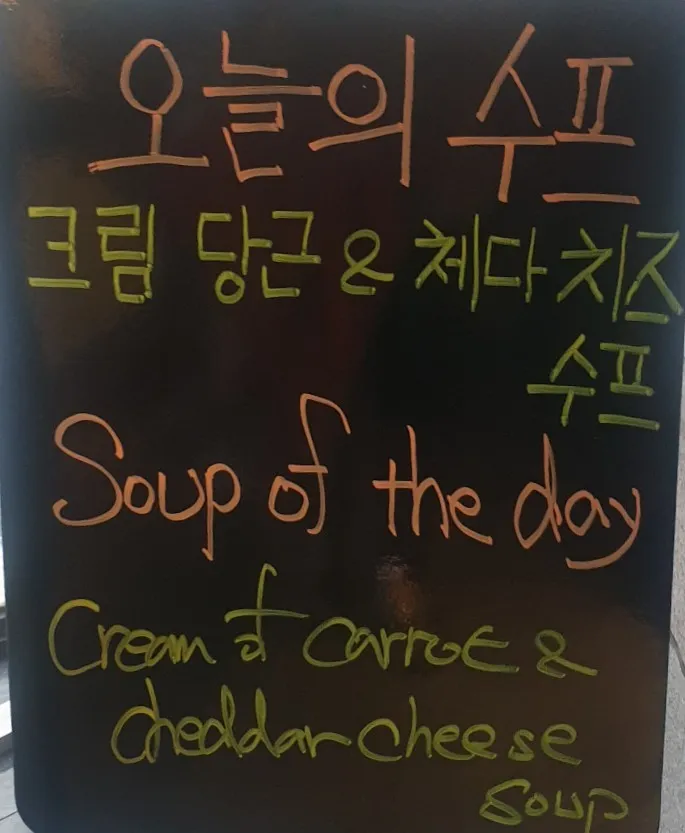 오늘의 수프
크림 당근 & 체다 치즈
수프
Soup of the day
Cream of carrot &
cheddar cheese
soup